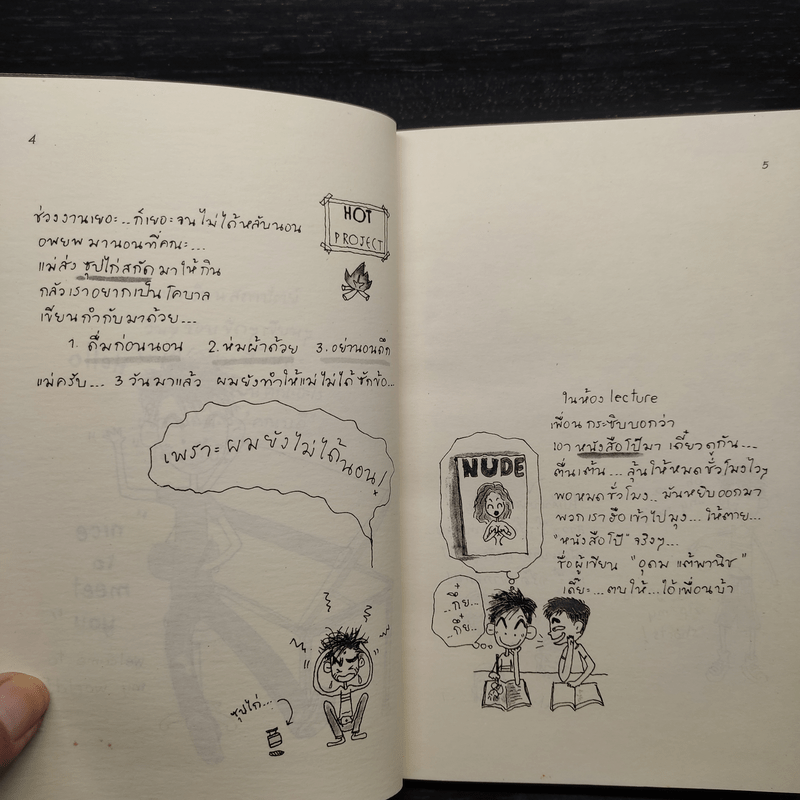 4
ช่วงงานเยอะ... ก็เยอะจนไม่ได้หลับนอน
อพยพมานอนที่คณะ...
แม่ส่งซุปไก่สกัดมาให้กิน
กลัวเราอยากเป็นโคบาล
เขียนกำกับมาด้วย...
1. ดื่มก่อนนอน 2. ห่มผ้าด้วย 3. อย่านอนดึก
แม่ครับ... 3 วันมาแล้ว ผมยังทำให้แม่ไม่ได้ซักข้อ...
HOT
PROJECT
เพราะผมยังไม่ได้นอน!
ซุปไก่...
5
ในห้อง lecture
เพื่อนกระซิบบอกว่า
เอาหนังสือโป๊มา เดี๋ยวดูกัน...
ตื่นเต้น... ลุ้นให้หมดชั่วโมงไวๆ
พอหมดชั่วโมง.. มันหยิบออกมา
พวกเราฮือเข้าไปมุง... ให้ตาย...
"หนังสือโป๊" จริงๆ...
ชื่อผู้เขียน "อุดม แต้พานิช"
เดี๊ยะ... ตบให้... ไอ้เพื่อนบ้า
NUDE